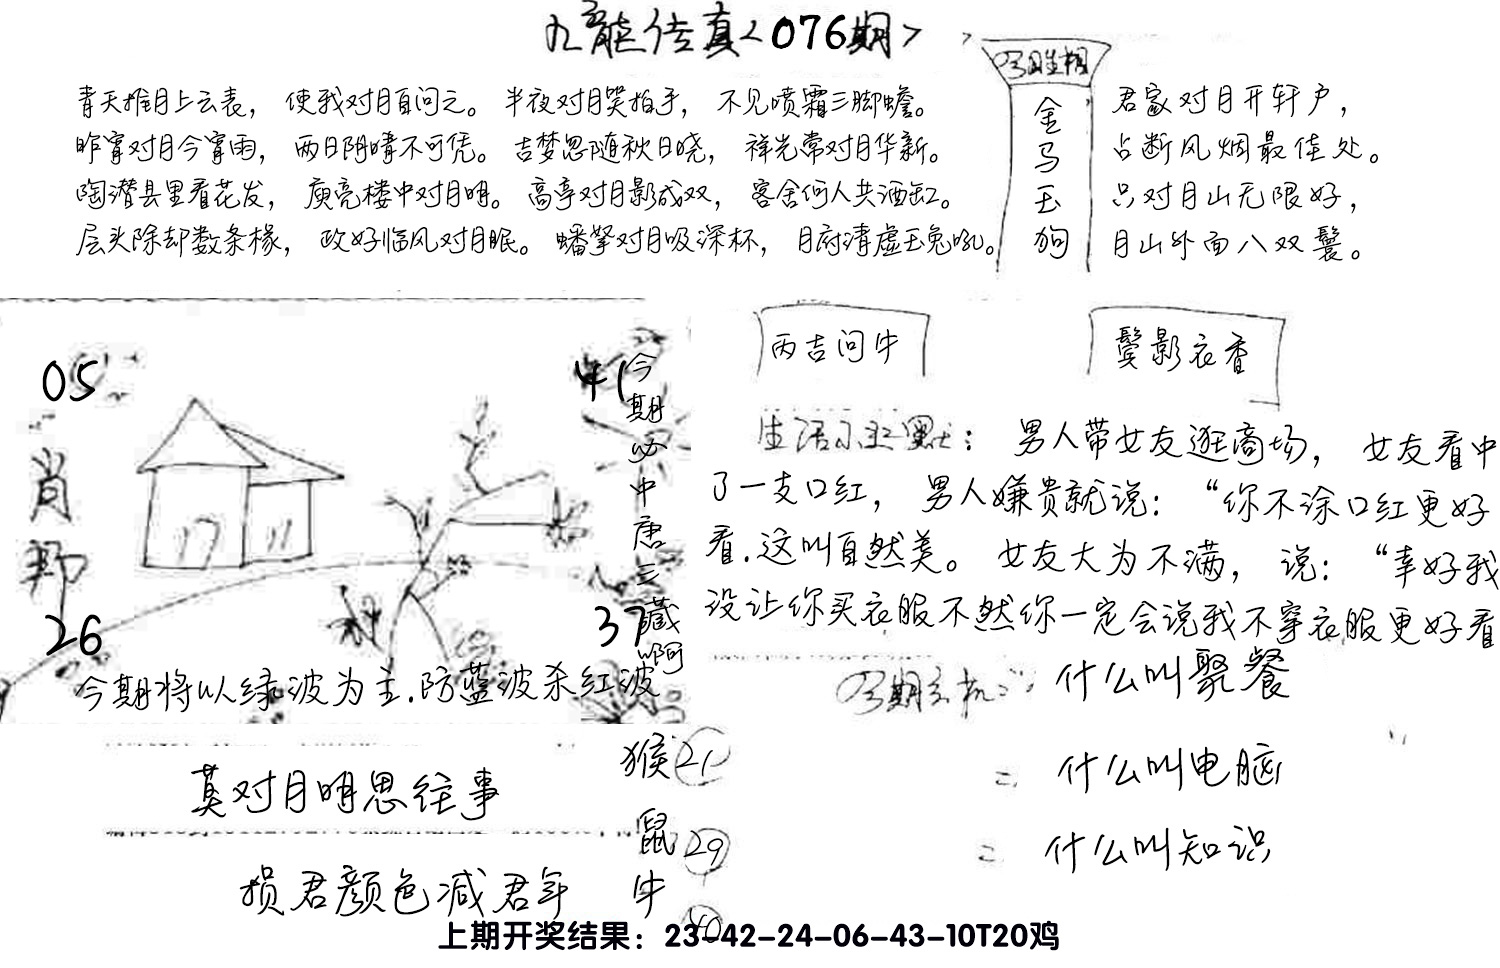 九龍传真<076期>
青天推月上云表，使我对月自问之。半夜对月笑拍手，不见喷霜三脚蟾。
昨宵对月今宵雨，两日阴晴不可凭。吉梦忽随秋日晓，祥光常对月华新。
陶潜县里看花发，庾亮楼中对月明。高亭对月影成双，客舍何人共酒缸。
层头除却数条椽，政好临风对月眠。蟠拏对月吸深杯，月府清虚玉兔吼。
金
马
玉
狗
君家对月开轩户，
占断风烟最佳处。
只对月山无限好，
月山外面八双鬟。
05
41
肖
26
37
今期必中唐三藏啊
今期将以绿波为主.防蓝波杀红波
丙吉问牛
鬓影衣香
生活小幽默：男人带女友逛商场，女友看中
了一支口红，男人嫌贵就说：“你不涂口红更好
看.这叫自然美。女友大为不满，说：“幸好我
没让你买衣服不然你一定会说我不穿衣服更好看
什么叫聚餐
二 什么叫电脑
三 什么叫知识
莫对月明思往事
损君颜色减君年
猴21
鼠29
牛40
上期开奖结果：23-42-24-06-43-10T20鸡